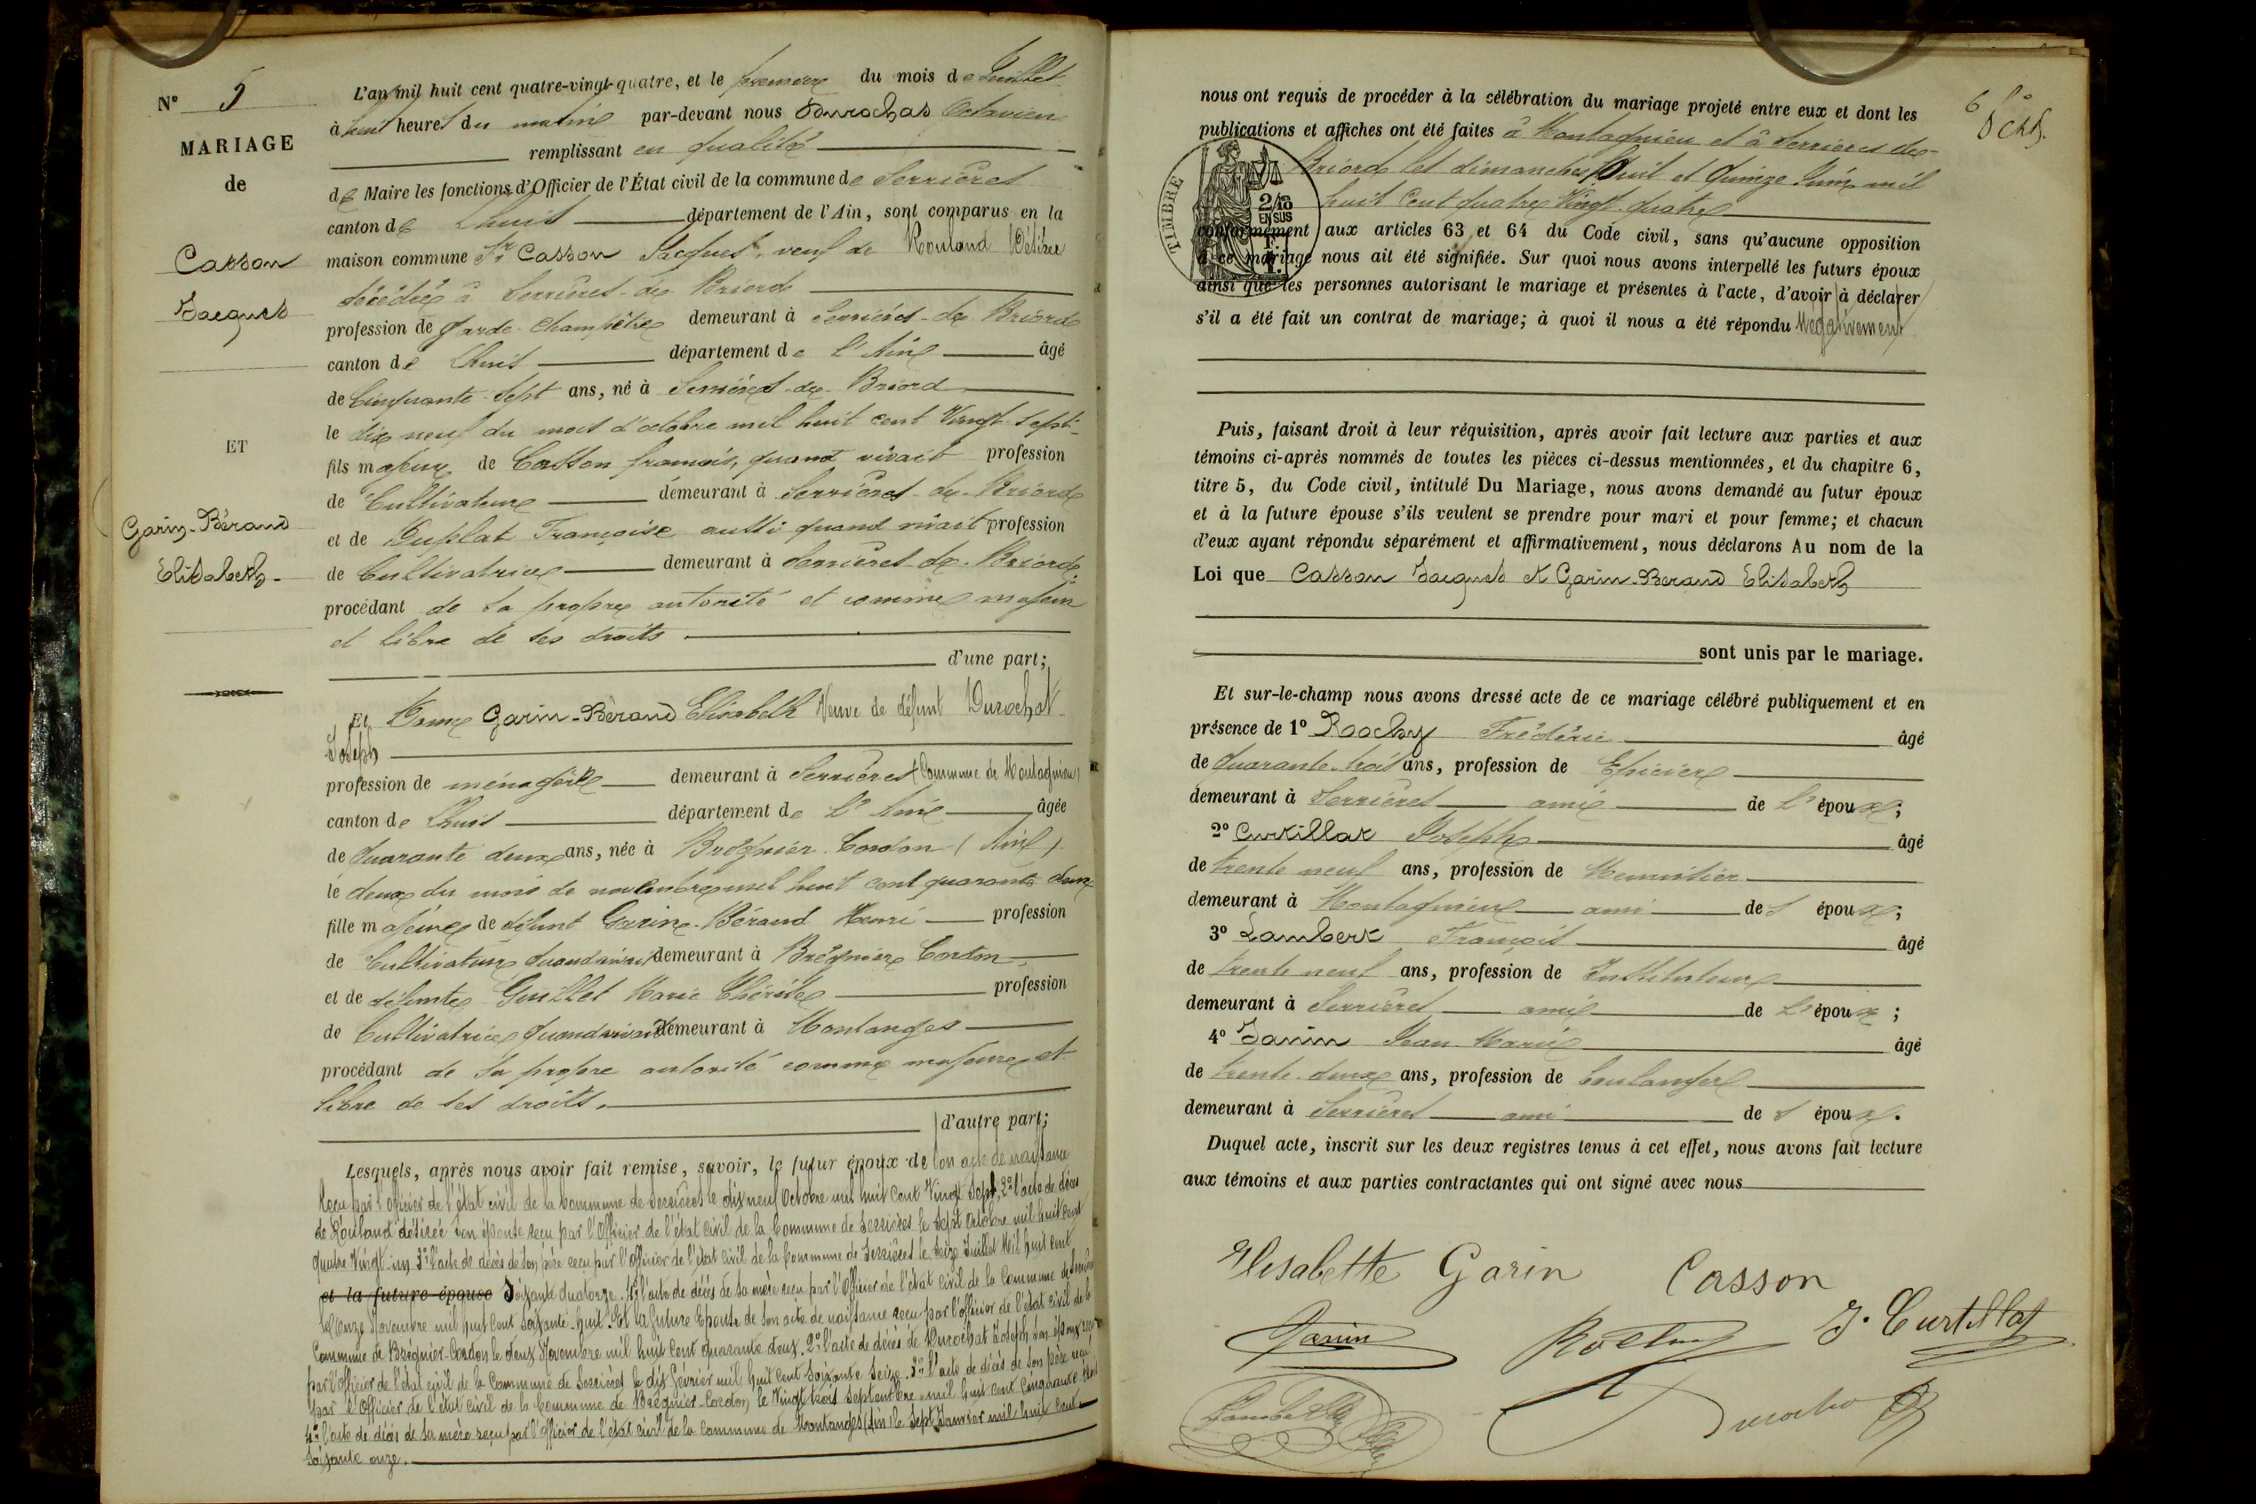 N° 5
MARIAGE
de
Casson
Jacques
ET
Garin-Béraud
Elisabeth
L'an mil huit cent quatre-vingt-quatre, et le premier du mois de Juillet
à huit heures du matin par-devant nous Durochas Octavien
remplissant en qualité
de Maire les fonctions d'Officier de l'État civil de la commune de Serrières
canton de Lhuis département de l'Ain, sont comparus en la
maison commune Sr Casson Jacques, veuf de Rouland Désirée
décédée à Serrières-de Briord
profession de garde champêtre demeurant à Serrières-de Briord
canton de Lhuis département de l'Ain âgé
de Cinquante-Sept ans, né à Serrières-de-Briord
le dix neuf du mois d'octobre mil huit cent Vingt-sept-
fils majeur de Casson françois, quand vivait profession
de Cultivateur demeurant à Serrières-de-Briord
et de Duplat Françoise aussi quand vivait profession
de Cultivatrice demeurant à Serrières-de-Briord;
procédant de sa propre autorité et comme majeur
et libre de ses droits
d'une part;
Et Dame Garin-Béraud Elisabeth Veuve de défunt Durochat
Joseph
profession de ménagère demeurant à Serrières (Commune de Montagnieu)
canton de Lhuis département de l'Ain âgée
de Quarante deux ans, née à Brégnier-Cordon (Ain)
le deux du mois de novembre mil huit cent quarante deux
fille majeure de défunt Garin-Béraud Henri profession
de Cultivateur quand vivait demeurant à Brégnier Cordon
et de défunte Guillet Marie Thérèse profession
de Cultivatrice quand vivait demeurant à Montanges
procédant de sa propre autorité comme majeure et
libre de ses droits.
d'autre part;
Lesquels, après nous avoir fait remise, savoir, le futur époux de son acte de naissance
Reçu par l'officier de l'état civil de la Commune de Serrières le dix neuf Octobre mil huit cent Vingt Sept, 2° l'acte de décès
de Rouland désirée son épouse reçu par l'Officier de l'état civil de la Commune de Serrières le sept octobre mil huit cent
quatre Vingt-un 3° l'acte de décès de son père reçu par l'officier de l'état civil de la Commune de Serrières le seize Juillet Mil huit cent
et la future épouse Soixante quatorze. 4° l'acte de décès de sa mère reçu par l'Officier de l'état civil de la Commune de Serrières
le onze Novembre mil huit cent soixante-huit. Et la future Epouse de son acte de naissance reçu par l'officier de l'état civil de la
Commune de Brégnier-Cordon le deux Novembre mil huit cent quarante deux. 2° l'acte de décès de Durochat Joseph son époux reçu
par l'officier de l'état civil de la Commune de Serrières le dix février mil huit cent soixante Seize. 3° l'acte de décès de son père reçu
par l'Officier de l'état civil de la Commune de Brégnier-Cordon le Vingt trois septembre mil huit cent Cinquante
4° l'acte de décès de sa mère reçu par l'officier de l'état civil de la commune de Montanges (Ain) le sept Janvier mil huit cent
soixante onze.
nous ont requis de procéder à la célébration du mariage projeté entre eux et dont les
publications et affiches ont été faites à Montagnieu et à Serrières-de-
Briord les dimanches huit et Quinze Juin mil
huit Cent Quatre Vingt-quatre
conformément aux articles 63 et 64 du Code civil, sans qu'aucune opposition
à ce mariage nous ait été signifiée. Sur quoi nous avons interpellé les futurs époux
ainsi que les personnes autorisant le mariage et présentes à l'acte, d'avoir à déclarer
s'il a été fait un contrat de mariage; à quoi il nous a été répondu Négativement
TIMBRE
2/10
EN SUS
Puis, faisant droit à leur réquisition, après avoir fait lecture aux parties et aux
témoins ci-après nommés de toutes les pièces ci-dessus mentionnées, et du chapitre 6,
titre 5, du Code civil, intitulé Du Mariage, nous avons demandé au futur époux
et à la future épouse s'ils veulent se prendre pour mari et pour femme; et chacun
d'eux ayant répondu séparément et affirmativement, nous déclarons Au nom de la
Loi que Casson Jacques et Garin-Beraud Elisabeth
sont unis par le mariage.
Et sur-le-champ nous avons dressé acte de ce mariage célébré publiquement et en
présence de 1° Frédéric âgé
de Quarante-trois ans, profession de Epicier
demeurant à Serrières ami de l'époux;
2° Curtillat Joseph âgé
de trente neuf ans, profession de Menuisier
demeurant à Montagnieu ami de l'époux;
3° Lambert François âgé
de trente neuf ans, profession de Instituteur
demeurant à Serrières ami de l'époux;
4° Janin Jean Marie âgé
de trente-deux ans, profession de boulanger
demeurant à Serrières ami de l'époux.
Duquel acte, inscrit sur les deux registres tenus à cet effet, nous avons fait lecture
aux témoins et aux parties contractantes qui ont signé avec nous
Elisabette Garin Casson
Janin J. Curtillat